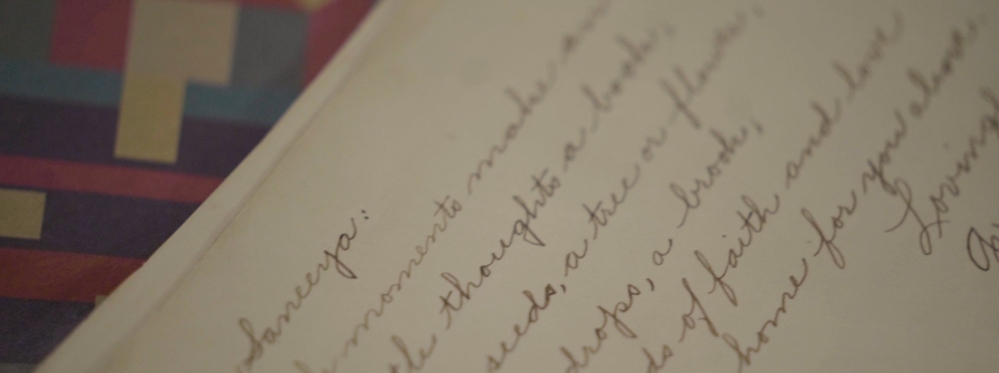 Saneeya:
moments make an
thoughts a book,
seeds, a tree or flower,
drops, a brook,
of faith and love
home for you above.
Loving